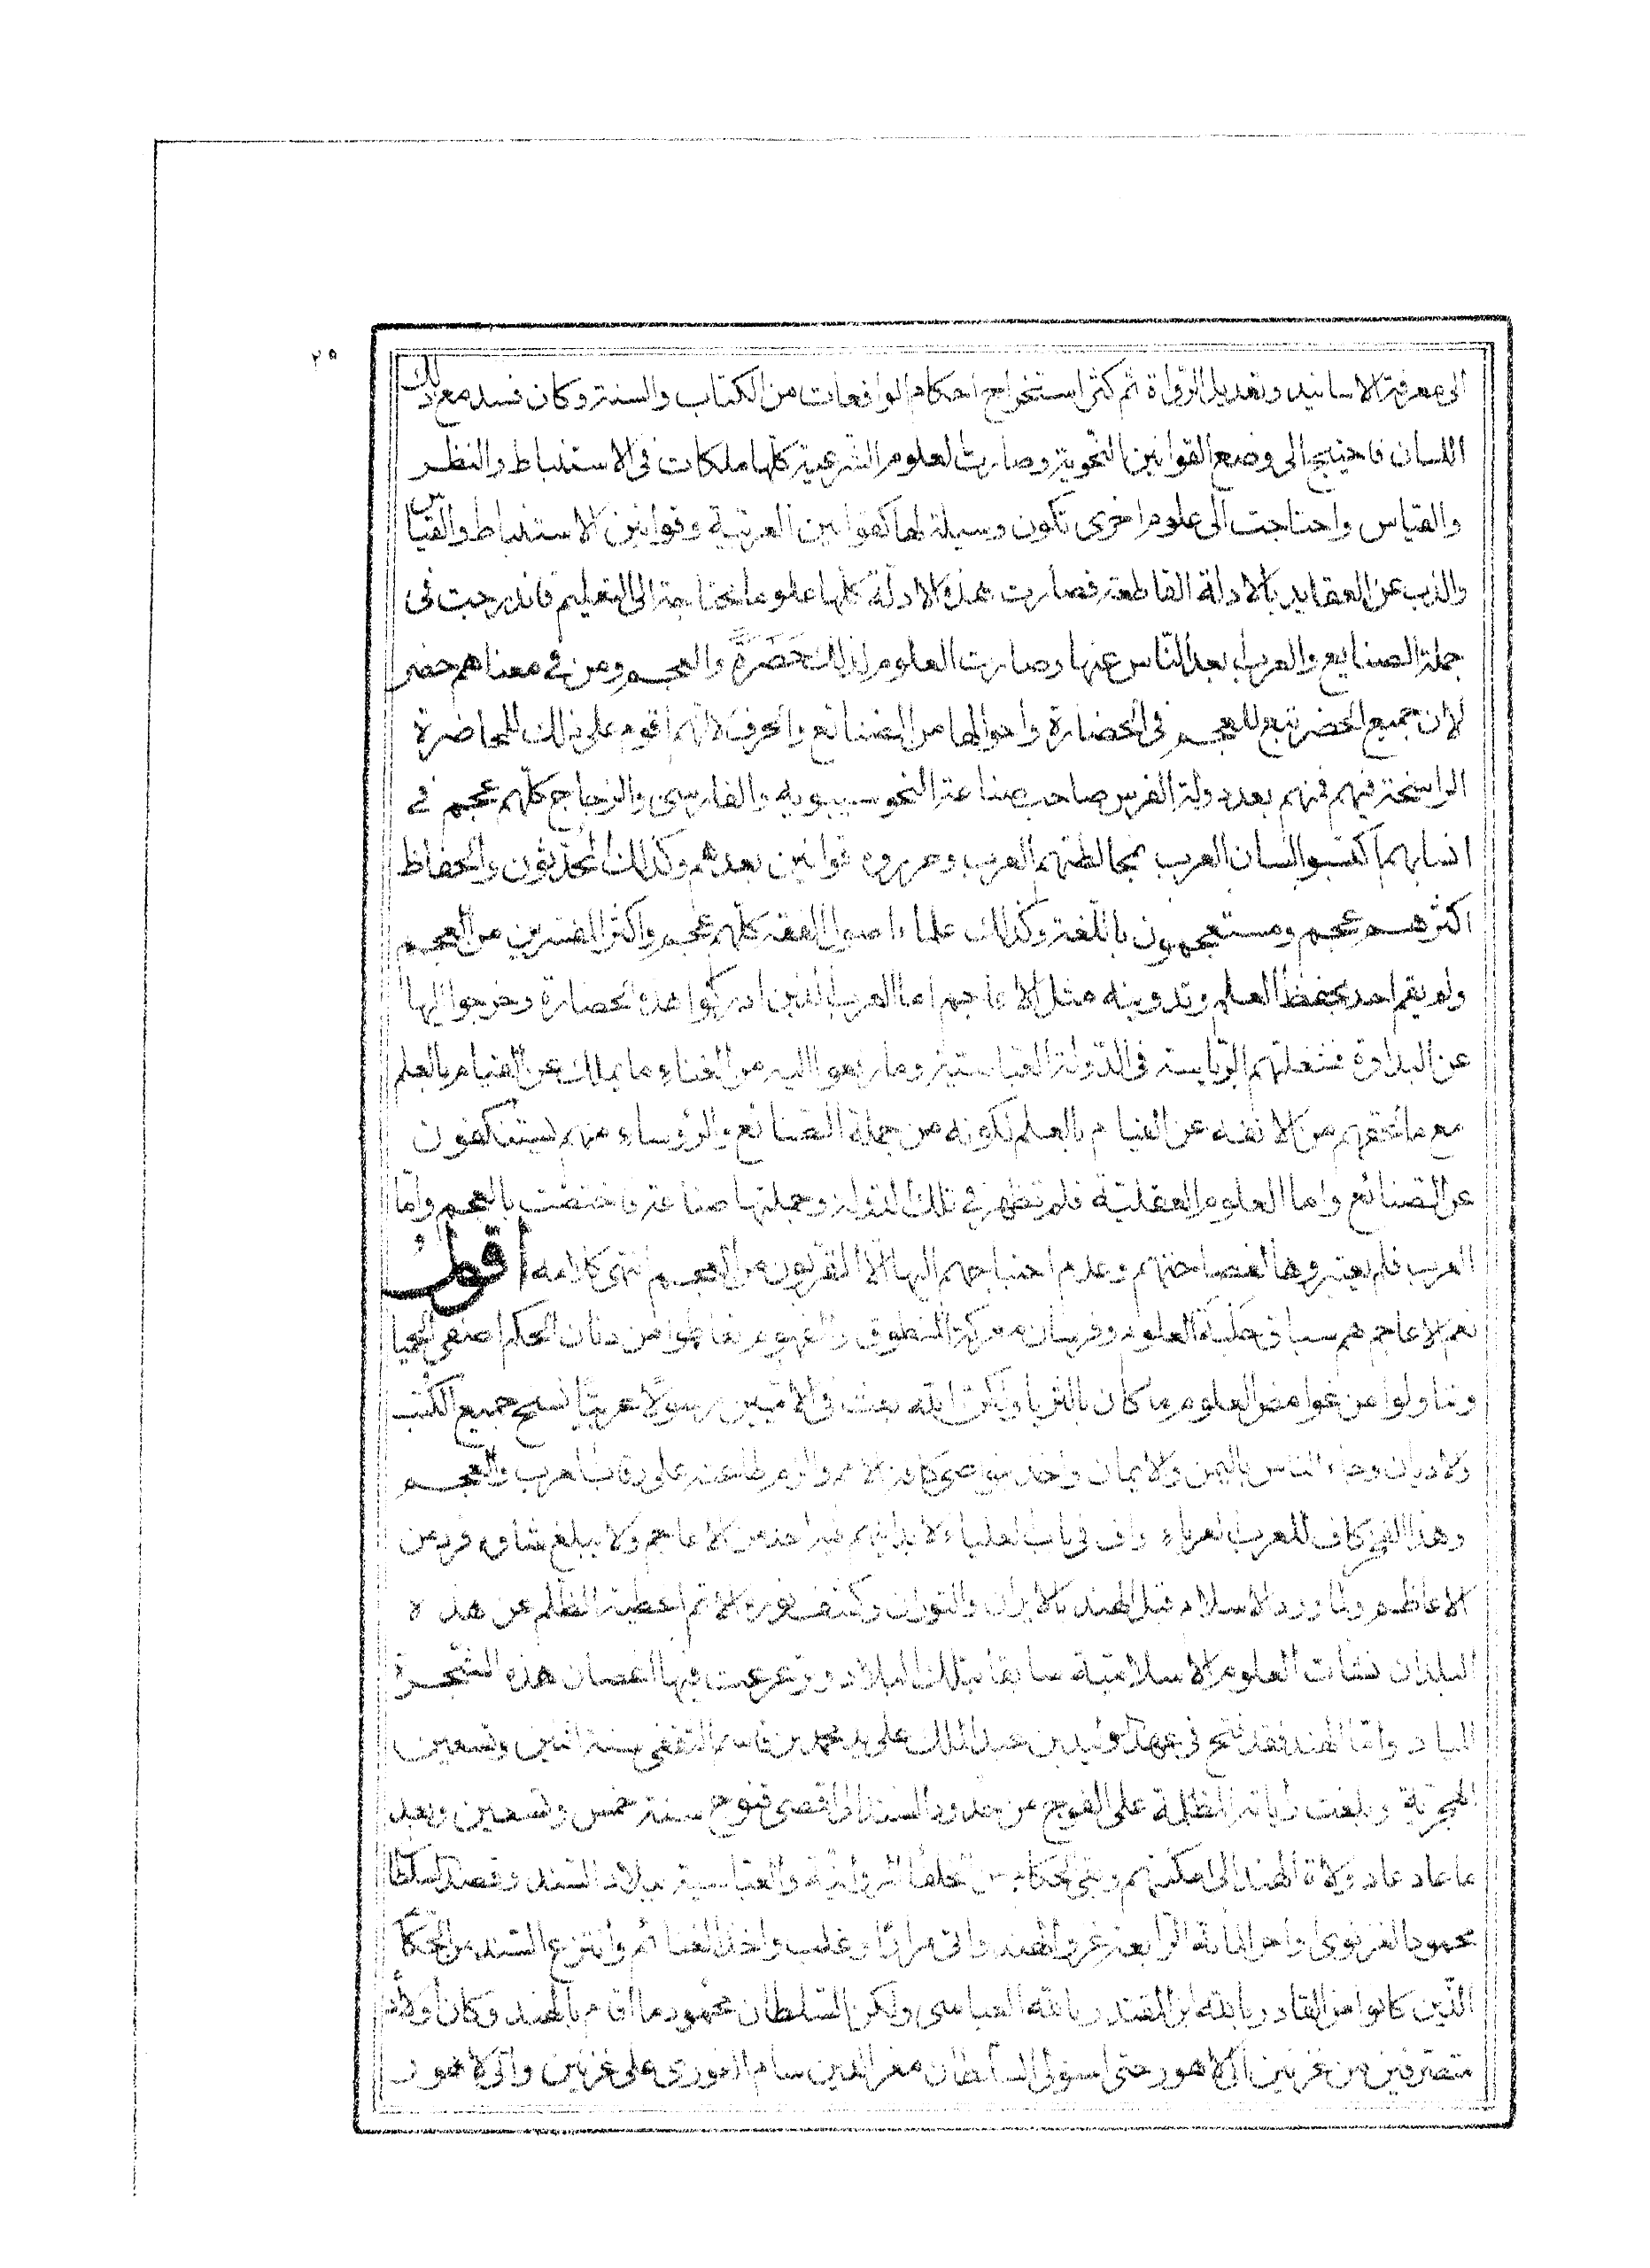 ٢٥
الى معرفة الاسانيد وتعديل الرّواة ثم كثر استخراج احكام الواقعات من الكتاب والسنة وكان فسد مع ذلك
اللسان فاحتيج الى وضع القوانين النّحوية وصارت العلوم الشرعية كلّها ملكات فى الاستنباط والنظر
والقياس واحتاجت الى علوم اخرى تكون وسيلة لها كقوانين العربيّة وقوانين الاستنباط والقياس
والذب عن العقايد بالادلة القاطعة فصارت هذه الادلّة كلها علوما محتاجة الى التعليم فاندرجت فى
جملة الصنايع والعرب ابعد النّاس عنها وصارت العلوم لذلك حَضَرِيَّةً والعجم ومن فى معناهم حضر
لان جميع الحضر تبع للعجم فى الحضارة واحوالها من الصنائع والحرف لانّهم اقوم على ذلك للحاضرة
الراسخة فيهم فمنهم بعد دولة الفرس صاحب صناعة النحو سيبويه والفارسى والزجاج كلّهم عجم فى
انسابهم اكتسبوا لسان العرب بمخالطتهم العرب وحرروه قوانين بعدهم وكذلك المحدّثون والحفاظ
اكثرهم عجم ومستعجمون باللّغة وكذلك علماء اصول الفقه كلّهم عجم واكثر المفسرين من العجم
ولم يقم احد بحفظ العلم وتدوينه مثل الاعاجم اما العرب الذين ادركوا هذه الحضارة وخرجوا اليها
عن البداوة فشغلتهم الرّياسة فى الدّولة العبّاسيّة وما دفعوا اليه من الغناء ما يملك عن القيام بالعلم
مع ما لحقهم من الانفة عن القيام بالعلم لكونه من جملة الصّنائع والرؤساء منهم يستنكفون
عن الصّنائع واما العلوم العقليّة فلم تظهر فى تلك الدّولة وجملتها صناعة فاختصّت بالعجم وامّا
العرب فلم يعتبروها لفصاحتهم وعدم احتياجهم اليها الّا القريبون من العجم انتهى كلامه اقول
نعم الاعاجم هم سباق حَلْبَة العلوم وفرسان معركة المنطوق والمفهوم تعاطوا من دنان الحكم اصفى الحميا
وتناولوا من غوامض العلوم ما كان بالثريا ولكنّ الله بعث فى الامّيين رسولًا عربيًّا نسخ جميع الكُتُب
والاديان وجاء الناس باليمن والايمان واخذ بنواصى الامم والزم طاعته على رقاب العرب والعجم
وهذا الفخر كاف للعرب العرباء واف فى باب العلياء لا يدانيهم فيه احد من الاعاجم ولا يبلغ شاوه فرد من
الاعاظم ولما ورد الاسلام قبل الهند بالايران والتوران وكشف نوره الاتم اغطية الظلم عن هذه
البلدان نشأت العلوم الاسلاميّة سابقا بتلك البلاد وترعرعت فيها اغصان هذه الشّجرة
واما الهند فقد فتح فى عهد الوليد بن عبد الملك على يد محمد بن قاسم الثقفى سنة اثنين وتسعين
الهجرية وبلغت راياته المظلّة على الفوج من حدود السند الى اقصى قنوج سنة خمس وتسعين وبعد
ما عاد عاد ولاة الهند الى امكنتهم وبقى الحكام من الخلفاء المروانيّة والعبّاسية ببلاد السّند وقصد السلطان
محمود الغزنوى اواخر المائة الرّابعة غزو الهند واتى مرارًا وغلب واخذ الغنائم وانتزع السّند من الحكّام
الّذين كانوا من القادر بالله ابن المقتدر بالله العباسى ولكن السّلطان محمود ما اقام بالهند وكان اولاده
متصرفين من غزنين الى لاهور حتى استولى السّلطان معز الدين سام الغورى على غزنين واتى لاهور